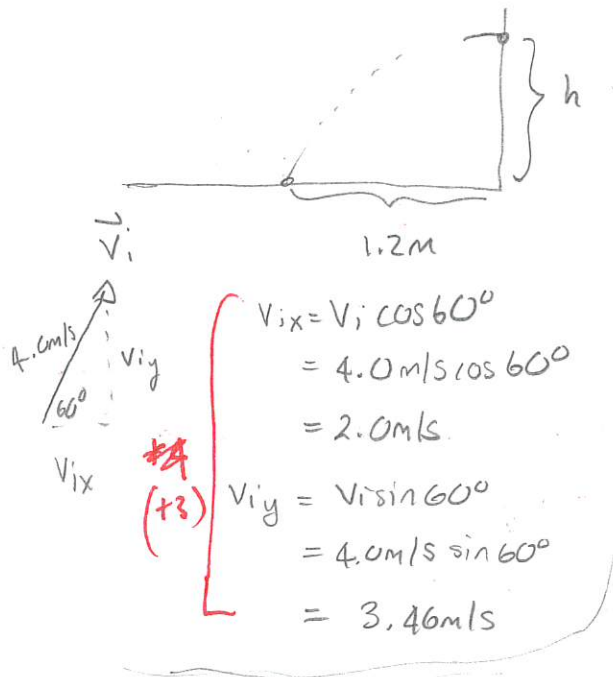 h
1.2m
V⃗i
4.0m/s
Viy
60°
Vix
Vix = Vi cos60°
= 4.0m/s cos 60°
= 2.0m/s
(+3)
Viy = Vi sin 60°
= 4.0m/s sin 60°
= 3.46m/s